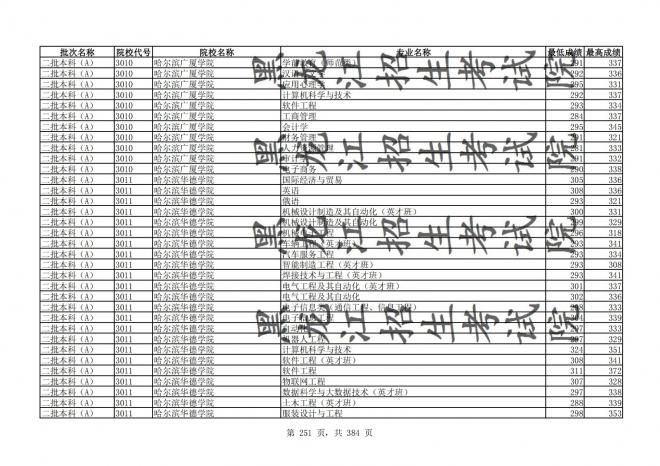 批次名称 院校代号 院校名称 专业名称 最低成绩 最高成绩
二批本科（A） 3010 哈尔滨广厦学院 学前教育（师范类） 291 337
二批本科（A） 3010 哈尔滨广厦学院 汉语言文学 292 336
二批本科（A） 3010 哈尔滨广厦学院 应用心理学 295 331
二批本科（A） 3010 哈尔滨广厦学院 计算机科学与技术 292 337
二批本科（A） 3010 哈尔滨广厦学院 软件工程 293 334
二批本科（A） 3010 哈尔滨广厦学院 工商管理 284 337
二批本科（A） 3010 哈尔滨广厦学院 会计学 295 345
二批本科（A） 3010 哈尔滨广厦学院 财务管理 291 321
二批本科（A） 3010 哈尔滨广厦学院 人力资源管理 281 333
二批本科（A） 3010 哈尔滨广厦学院 审计学 291 332
二批本科（A） 3010 哈尔滨广厦学院 电子商务 290 338
二批本科（A） 3011 哈尔滨华德学院 国际经济与贸易 305 336
二批本科（A） 3011 哈尔滨华德学院 英语 308 336
二批本科（A） 3011 哈尔滨华德学院 俄语 293 321
二批本科（A） 3011 哈尔滨华德学院 机械设计制造及其自动化（英才班） 300 331
二批本科（A） 3011 哈尔滨华德学院 机械设计制造及其自动化 299 329
二批本科（A） 3011 哈尔滨华德学院 机械电子工程 296 318
二批本科（A） 3011 哈尔滨华德学院 车辆工程（英才班） 293 341
二批本科（A） 3011 哈尔滨华德学院 汽车服务工程 293 334
二批本科（A） 3011 哈尔滨华德学院 智能制造工程（英才班） 293 308
二批本科（A） 3011 哈尔滨华德学院 焊接技术与工程（英才班） 293 341
二批本科（A） 3011 哈尔滨华德学院 电气工程及其自动化（英才班） 301 337
二批本科（A） 3011 哈尔滨华德学院 电气工程及其自动化 302 336
二批本科（A） 3011 哈尔滨华德学院 电子信息类（通信工程、信息工程） 333
二批本科（A） 3011 哈尔滨华德学院 电子信息工程 339
二批本科（A） 3011 哈尔滨华德学院 自动化 297 333
二批本科（A） 3011 哈尔滨华德学院 机器人工程 297 329
二批本科（A） 3011 哈尔滨华德学院 计算机科学与技术 324 351
二批本科（A） 3011 哈尔滨华德学院 软件工程（英才班） 308 341
二批本科（A） 3011 哈尔滨华德学院 软件工程 311 372
二批本科（A） 3011 哈尔滨华德学院 物联网工程 307 328
二批本科（A） 3011 哈尔滨华德学院 数据科学与大数据技术（英才班） 297 338
二批本科（A） 3011 哈尔滨华德学院 土木工程（英才班） 288 339
二批本科（A） 3011 哈尔滨华德学院 服装设计与工程 298 353
黑龙江招生考试院
黑龙江招生考试院
黑龙江招生考试院
黑龙江招生考试院
第 251 页，共 384 页